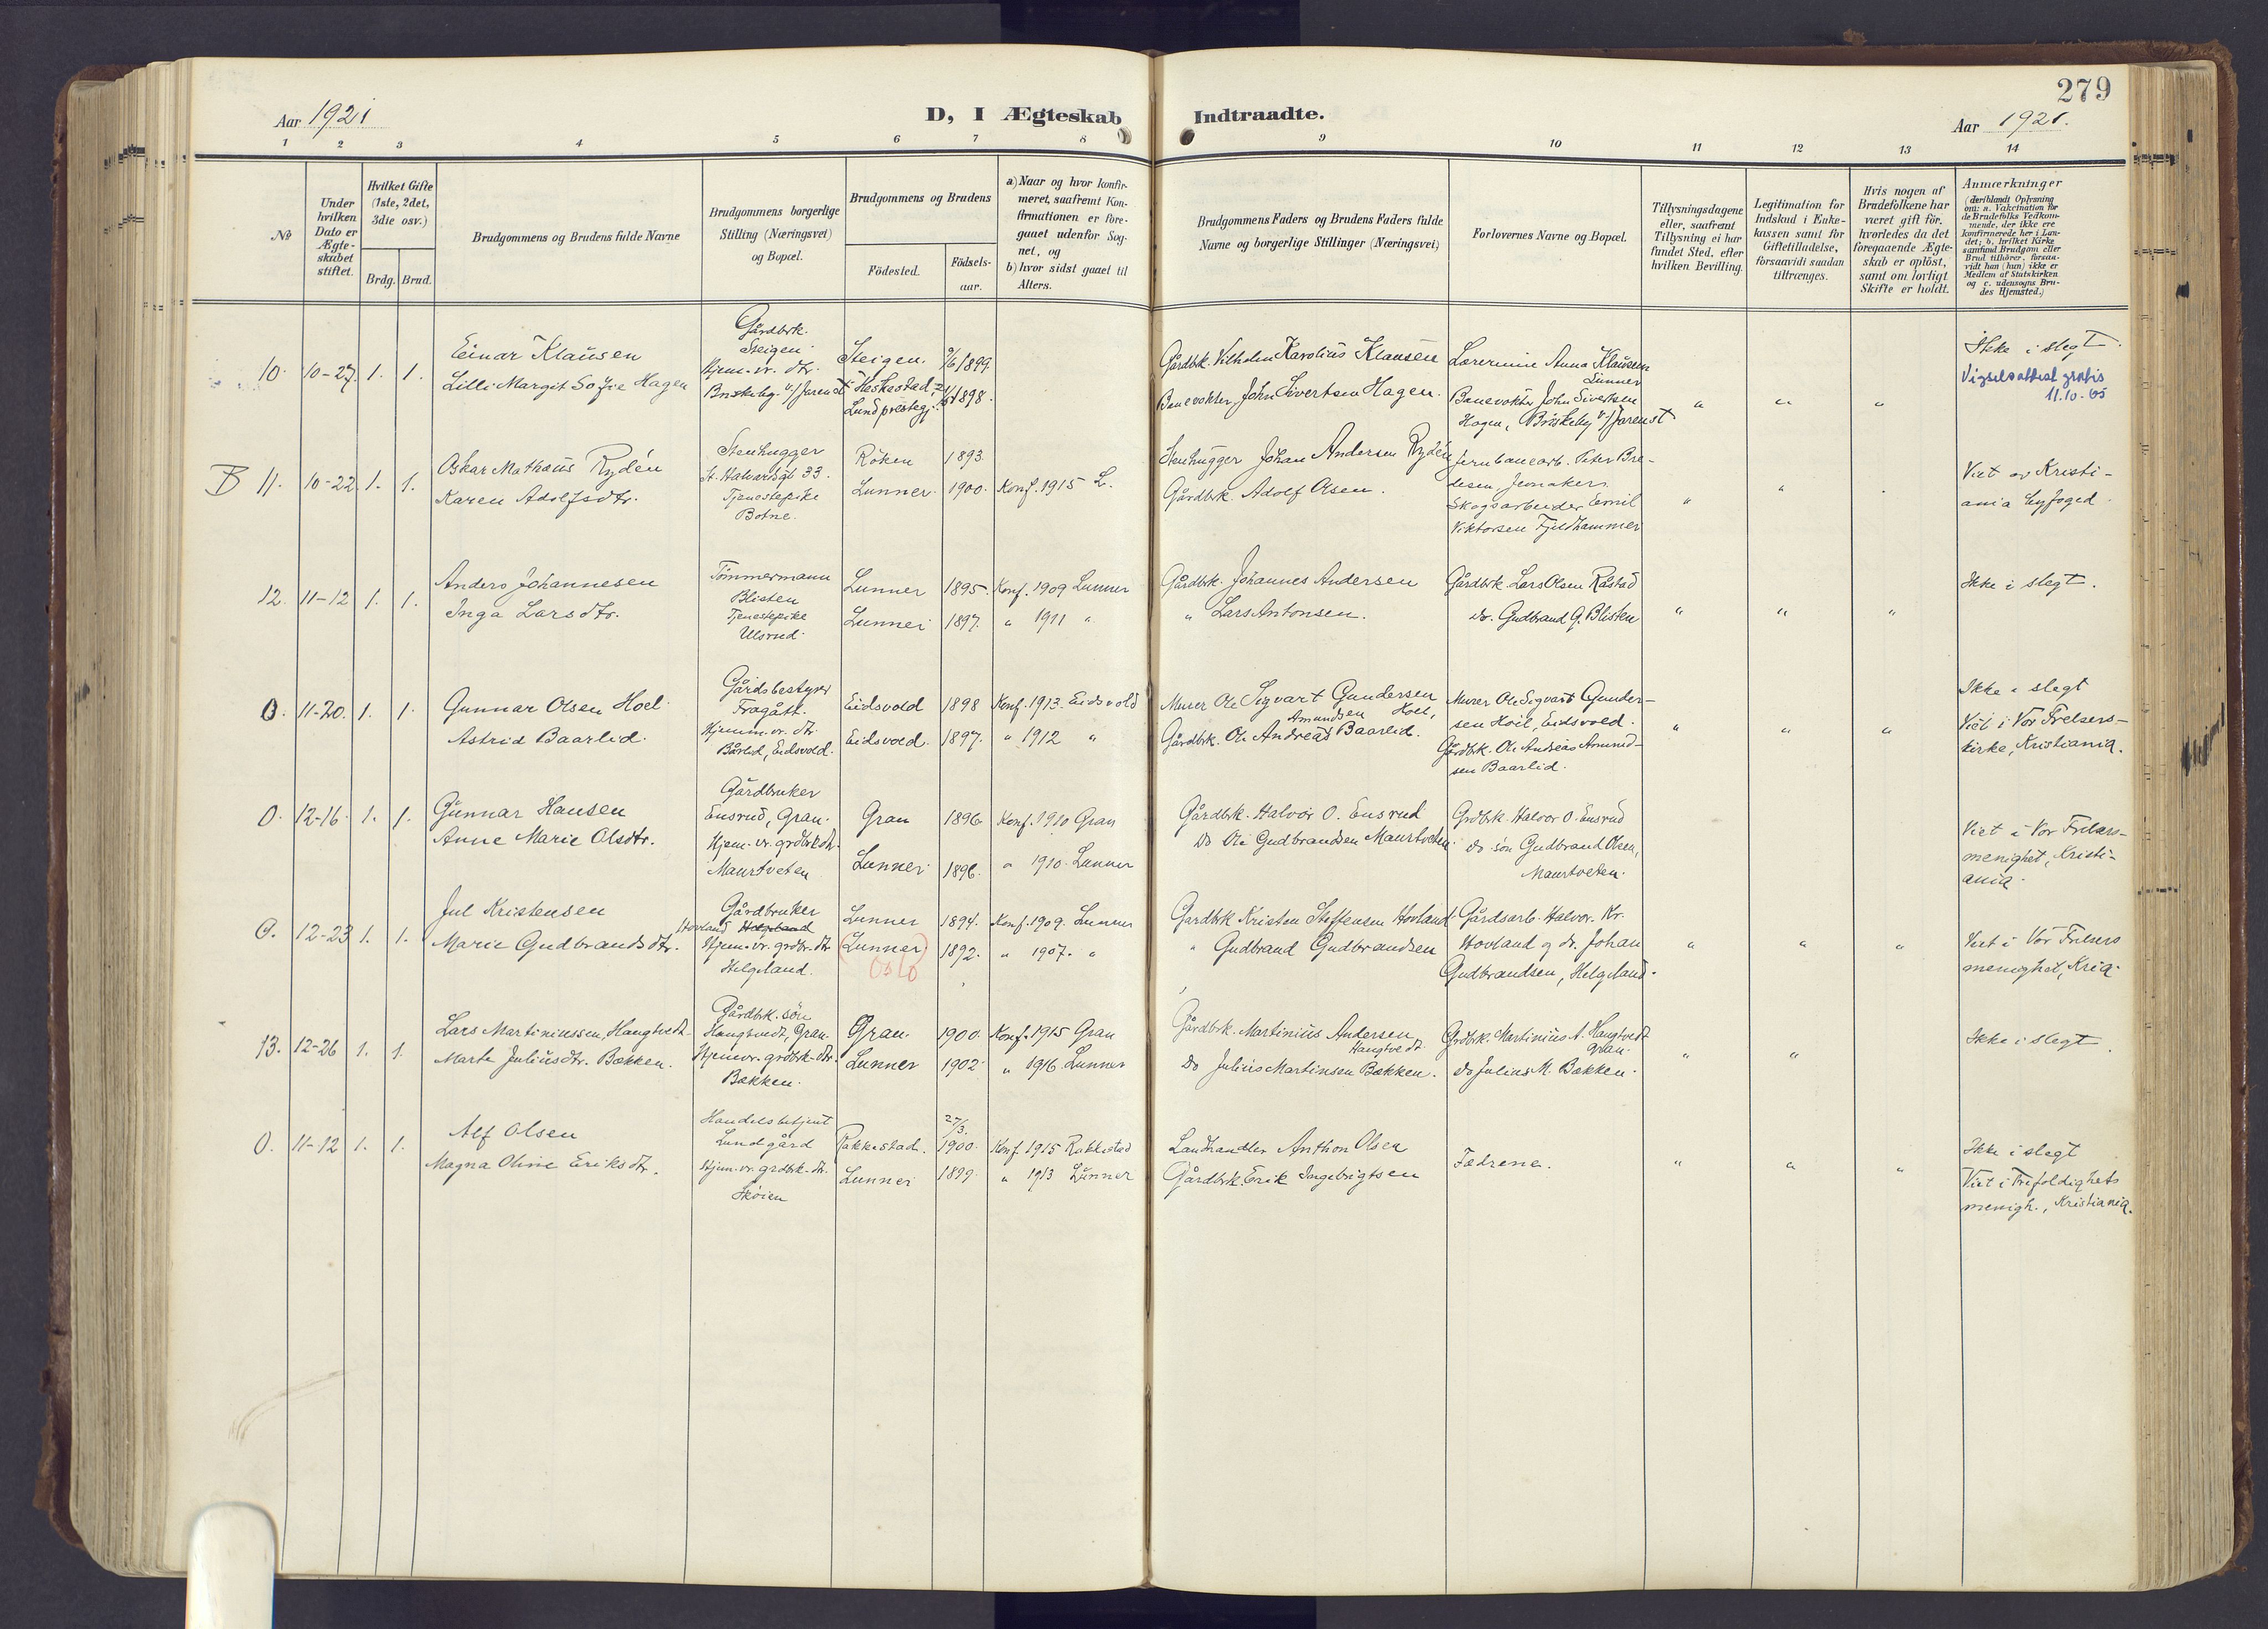 279
Aar 1921
D, I Ægteskab Indtraadte.
Aar 1921.
1 2 3 4 5 6 7 8 9 10 11 12 13 14
№
Under hvilken Dato er Ægteskabet stiftet.
Hvilket Gifte (1ste, 2det, 3die osv.)
Brdg. Brud.
Brudgommens og Brudens fulde Navne
Brudgommens borgerlige Stilling (Næringsvei) og Bopæl.
Brudgommens og Brudens
Födested.
Födselsaar.
a) Naar og hvor konfirmeret, saafremt Konfirmationen er foregaaet udenfor Sognet, og
b) hvor sidst gaaet til Alters.
Brudgommens Faders og Brudens Faders fulde Navne og borgerlige Stillinger (Næringsvei)
Forlovernes Navne og Bopæl.
Tillysningsdagene eller, saafremt Tillysning ei har fundet Sted, efter hvilken Bevilling.
Legitimation for Indskud i Enkekassen samt for Giftetilladelse, forsaavidt saadan tiltrænges.
Hvis nogen af Brudefolkene har været gift för, hvorledes da det foregaaende Ægteskab er oplöst, samt om lovligt Skifte er holdt.
Anmærkninger (deriblandt Oplysning om: a. Vakcination for de Brudefolks Vedkommende, der ikke ere konfirmerede her i Landet; b. hvilket Kirkesamfund Brudgom eller Brud tilhörer, forsaavidt han (hun) ikke er Medlem af Statskirken og c. udensogns Brudes Hjemsted.)
10. 10-27. 1. 1.
Einar Klausen
Lilli Margit Sofie Hagen
Gårdbrk.
Steigen.
Hjem.vr. dtr.
Briskeby v/ Jarenst
Steigen. 9/6 1899.
Heskestad,
Lund prestegj. 1898.
Gårdbk. Vilhelm Karolius Klausen
Banevokter John Sivertsen Hagen.
Lærerinne Anna Klausen
Lunner
Banevokter John Sivertsen
Hagen, Briskeby v/ Jarenst
" " "
Ikke i slegt.
Vigselsattest gratis
11.10-65
B 11. 10-22. 1. 1.
Oskar Mathæus Rydén
Karen Adolfsdtr.
Stenhugger
St. Halvardsgt 33.
Tjenestepike
Botne.
Röken 1893.
Lunner. 1900. Konf. 1915 L.
Stenhugger Johan Andersen Rydén
Gårdbrk. Adolf Olsen.
Jernbanearb. Peter Bredesen, Jevnaker.
Skogsarbeider Emil
Viktorsen Fjeldhammer
" " "
Viet av Kristiania byfoged.
12. 11-12 1. 1.
Anders Johannesen
Inga Larsdtr.
Tömmermann
Blisten
Tjenestepike
Ulsrud.
Lunner 1895. Konf. 1909 Lunner
Lunner 1897. " 1911 "
Gårdbk. Johannes Andersen
" Lars Antonsen.
Gårdbrk. Lars Olsen Råstad
do. Gudbrand G. Blisten
" " "
Ikke i slegt.
0. 11-20. 1. 1.
Gunnar Olsen Hoel
Astrid Baarlid.
Gårdsbestyrer
Fragått.
Hjemm.vr. dtr.
Bårlid, Eidsvold.
Eidsvold 1898 Konf. 1913. Eidsvold
Eidsvold. 1897. " 1912 "
Murer Ole Sigvart Gundersen Hoel,
Gårdbk. Ole Andreas Amundsen Baarlid.
Murer Ole Sigvart Gundersen Hoel, Eidsvold.
Gårdbk. Ole Andreas Amundsen Baarlid.
" " "
Ikke i slegt
Viet i Vor Frelserskirke, Kristiania.
0. 12-16. 1. 1.
Gunnar Hansen
Anne Marie Olsdtr.
Gårdbruker
Ensrud, Gran.
Hjem.vr. grdbrkdtr.
Maurtveten
Gran 1896 Konf. 1910 Gran
Lunner 1896. " 1910. Lunner
Gårdbrk. Halvor O. Ensrud
Do Ole Gudbrandsen Maurtveten.
Grdbk. Halvor O. Ensrud
do sön Gudbrand Olsen,
Maurtveten.
Viet i Vor Frelsersmenighet, Kristiania.
0. 12-23 1. 1.
Jul Kristensen
Marie Gudbrandsdtr.
Gårdbruker
Hovland
Hjem.vr. grdbr. dtr
Helgeland.
Lunner 1894. Konf. 1909. Lunner
(Lunner) 1892. " 1907. "
Oslo
Gardbrk Kristen Steffensen Hovland
" Gudbrand Gudbrandsen
Gårdsarb. Halvor Kr.
Hovland og do. Johan
Gudbrandsen, Helgeland.
" " "
Viet i Vor Frelsers
menighet, Kria.
13. 12-26 1. 1.
Lars Martiniussen Haugtvedt
Marte Juliusdtr. Bækken.
Gårdbk. sön
Haugtvedt, Gran.
Hjemvr. grdbrk-dtr.
Bækken.
Gran. 1900. Konf. 1915 Gran
Lunner 1902. " 1916. Lunner
Gårdbrk. Martinius Andersen
Haugtvedt.
Do Julius Martinsen Bækken.
Grdbrk. Martinius A. Haugtvedt
Gran.
do Julius M. Bækken.
" "
Ikke i slegt.
0. 11-12 1. 1.
Alf Olsen
Magna Oline Eriksdtr.
Handelsbetjent
Lundgård
Hjem.vr. grdbrk.-dtr.
Sköien
27/3.
Rakkestad. 1900. Konf. 1915 Rakkestad
Lunner 1899. " 1913 Lunner
Landhandler Anthon Olsen
Gårdbrk. Erik Ingebrigtsen
Fædrene.
" " "
Ikke i slegt
Viet i Trefoldighets
menigh., Kristiania.